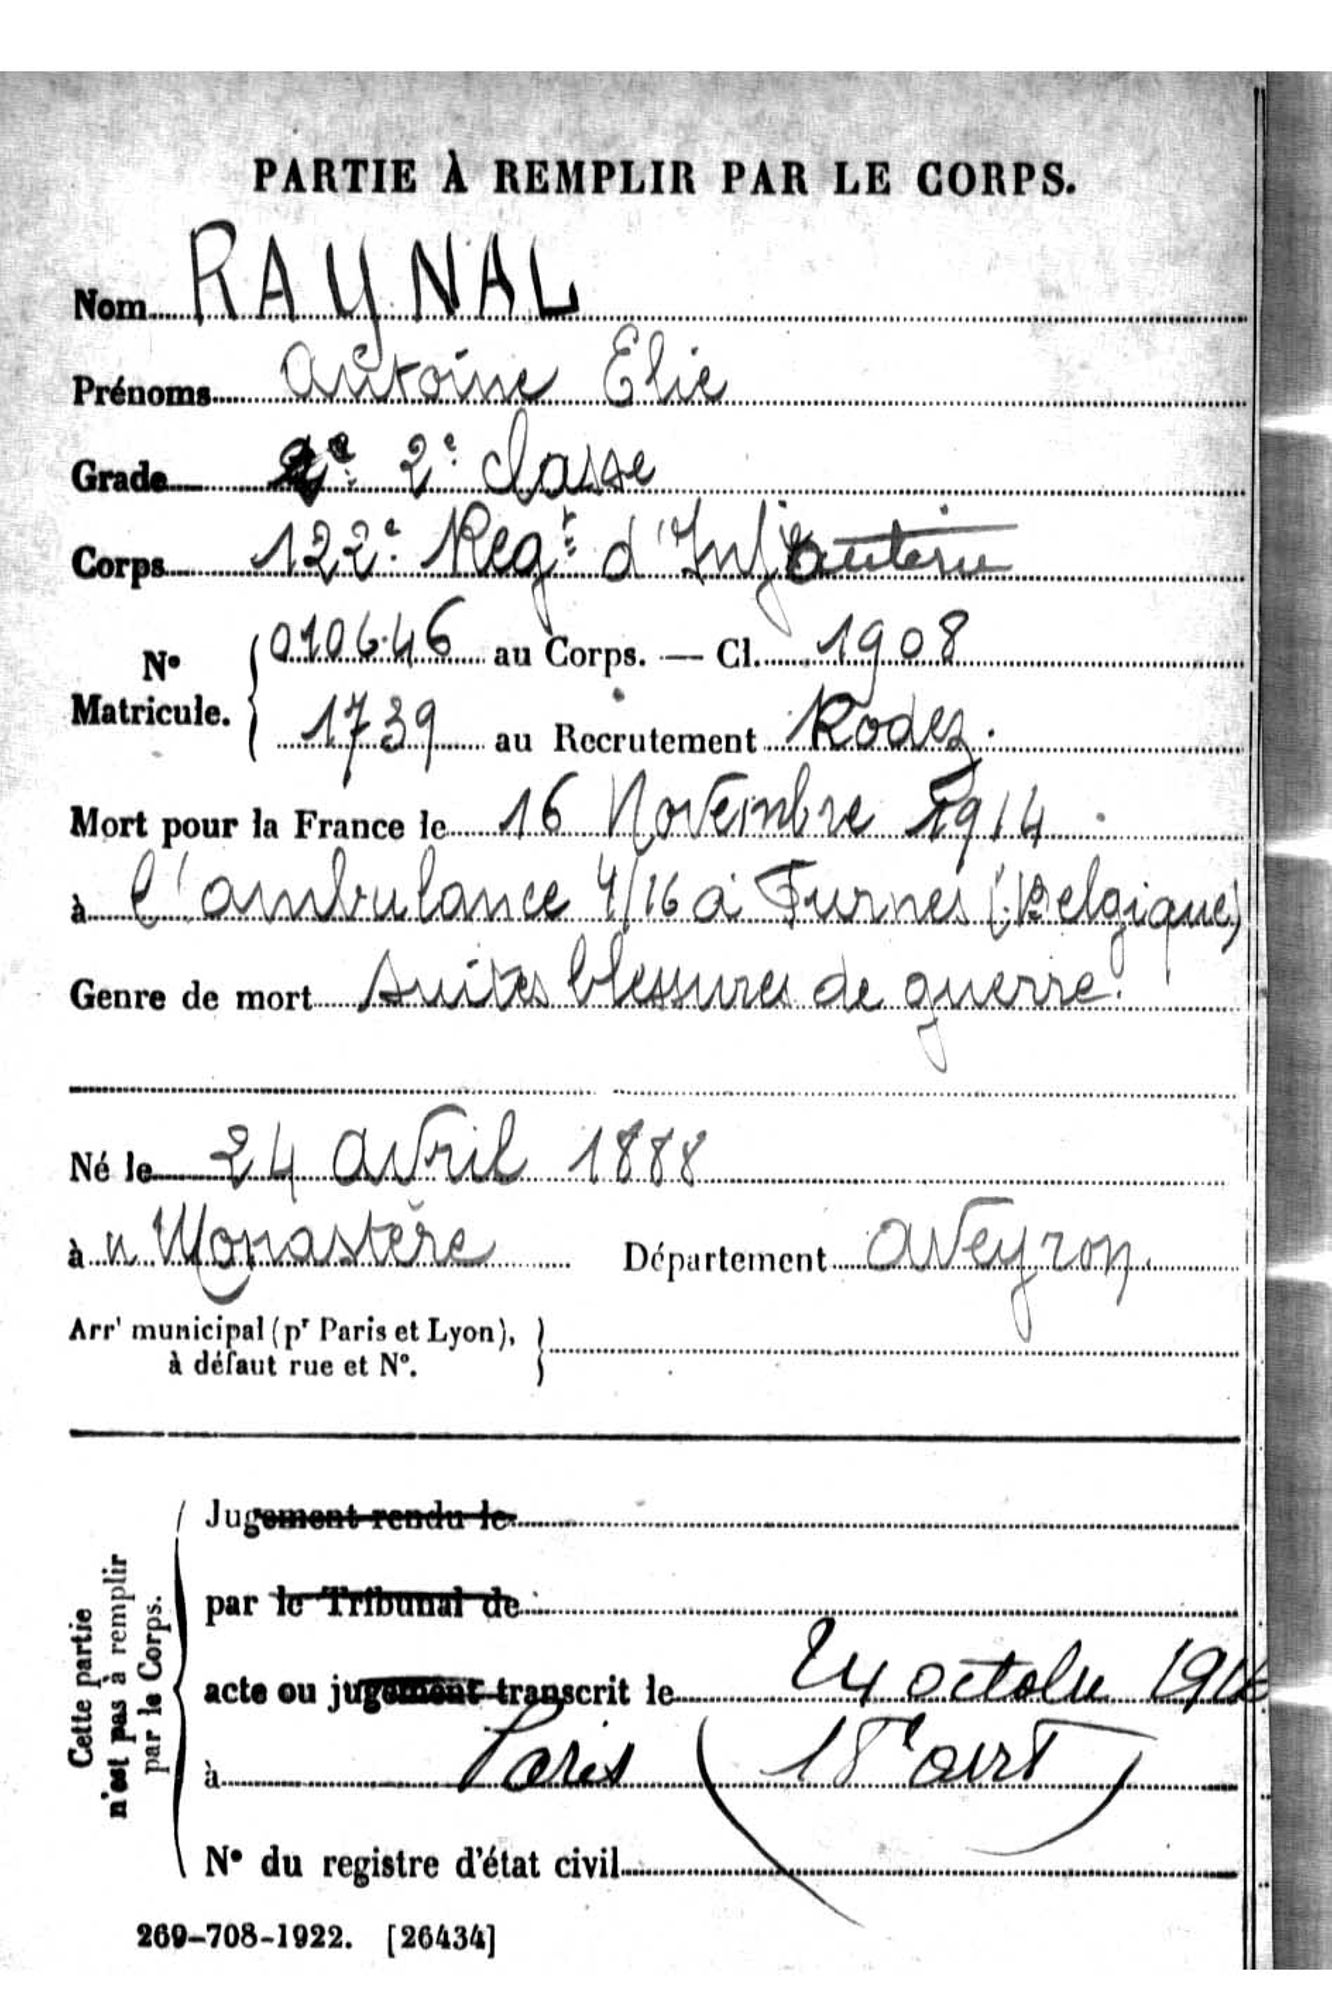 PARTIE À REMPLIR PAR LE CORPS.
Nom RAYNAL
Prénoms Antoine Elie
Grade 2e 2e Classe
Corps 122e Regt d'Infanterie
No Matricule. 010646 au Corps. — Cl. 1908
1739 au Recrutement Rodez.
Mort pour la France le 16 Novembre 1914
à l'ambulance 4/16 à Furnes (Belgique)
Genre de mort Suites blessures de guerre.
Né le 24 avril 1888
à u Monastère Département Aveyron
Arrt municipal (pr Paris et Lyon),
à défaut rue et No.
Cette partie
n'est pas à remplir
par le Corps.
Jugement rendu le
par le Tribunal de
acte ou jugement transcrit le 24 octobre 191
à Paris (18e arrt)
No du registre d'état civil
269-708-1922. [26434]